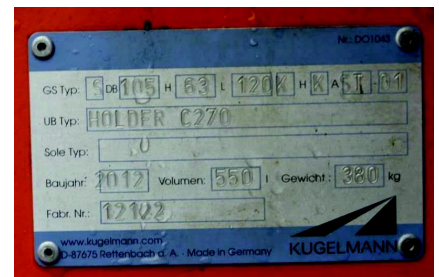 Nr.: DO1043
GS Typ: S DB 105 H 63 L 120K H K A ST -01
UB Typ: HOLDER C270
Sole Typ: U
Baujahr: 2012 Volumen: 550 l Gewicht: 380 kg
Fabr. Nr.: 12122
www.kugelmann.com
D-87675 Rettenbach a. A. - Made in Germany KUGELMANN